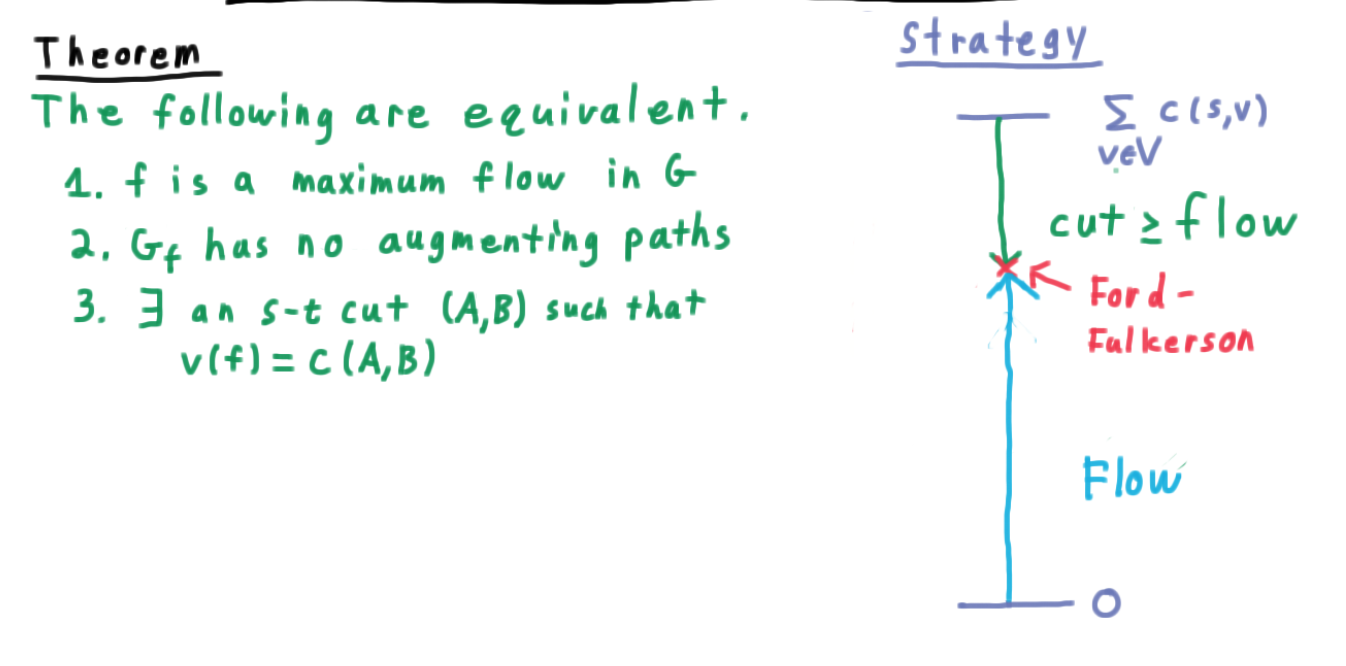 Theorem
The following are equivalent.
1. f is a maximum flow in G
2. Gf has no augmenting paths
3. ∃ an s-t cut (A,B) such that
v(f) = c(A,B)
Strategy
∑ c(s,v)
v∈V
cut ≥ flow
Ford-
Fulkerson
Flow
0